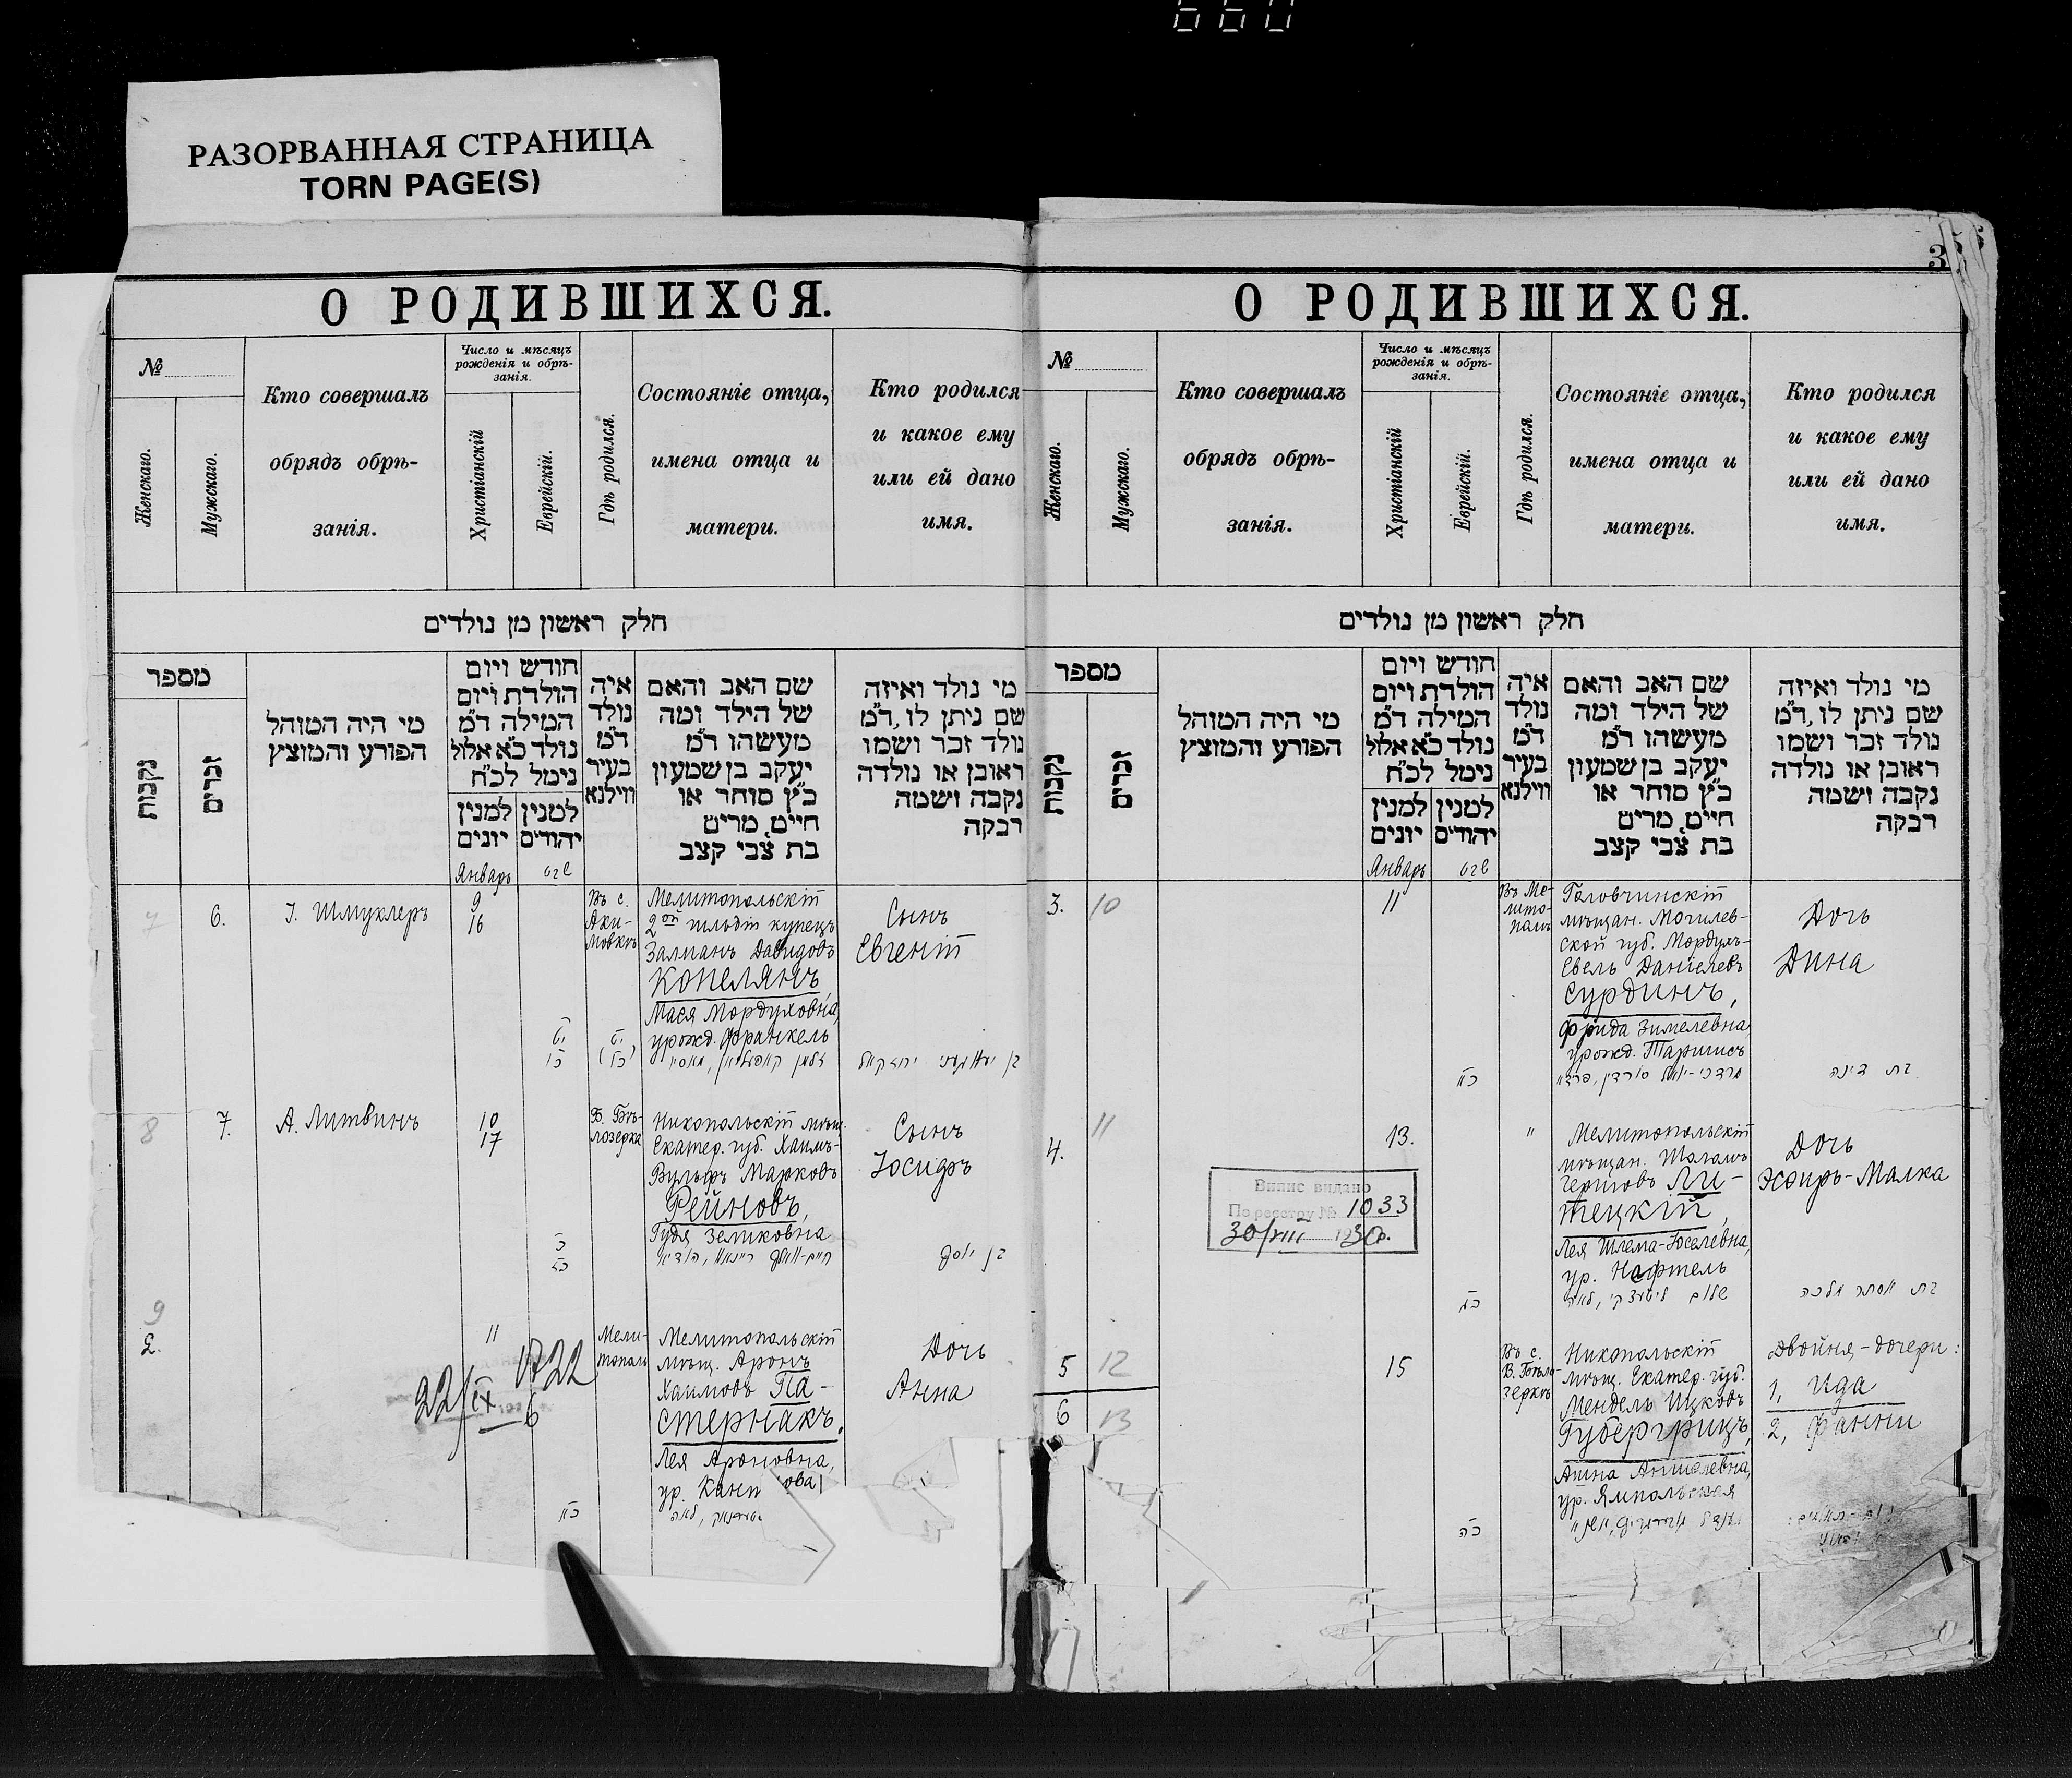 660
РАЗОРВАННАЯ СТРАНИЦА
TORN PAGE(S)
О РОДИВШИХСЯ.
№
Женскаго.
Мужскаго.
Кто совершалъ
обрядъ обрѣ-
занія.
Число и мѣсяцъ
рожденія и обрѣ-
занія.
Христіанскій
Еврейскій.
Гдѣ родился.
Состояніе отца,
имена отца и
матери.
Кто родился
и какое ему
или ей дано
имя.
חלק ראשון מן נולדים
מספר
נקבות
זכרים
מי היה המוהל
הפורע והמוצץ
חודש ויום
הולדת ויום
המילה ד״מ
נולד כ״א אלול
נימל לכ״ח
למנין
יונים
למנין
יהודים
איה
נולד
ד״מ
בעיר
ווילנא
שם האב והאם
של הילד ומה
מעשהו ד״מ
יעקב בן שמעון
כ״ץ סוחר או
חייט, מרים
בת צבי קצב
מי נולד ואיזה
שם ניתן לו, ד״מ
נולד זכר ושמו
ראובן או נולדה
נקבה ושמה
רבקה
Январь
שבט
7
6.
І. Шмуклеръ
9
16
Въ с.
Аки-
мовкѣ
Мелитопольскій
2ой гильдіи купецъ
Залманъ Давидовъ
Копелянъ,
Мася Мордуховна,
урожд. Франкель
Сынъ
Евгеній
8
7.
А. Литвинъ
10
17
Б. Бѣ-
лозерка
Никопольскій мѣщ.
Екатер. губ. Хаимъ-
Вульфъ Марковъ
Рейновъ,
Гудя Зеликовна
Сынъ
Іосифъ
בן יוסף
9
2.
11
22/IX
6
Мели-
тополь
Мелитопольскій
мѣщ. Аронъ
Хаимовъ Па-
стернакъ.
Лея Ароновна,
ур.
Дочь
Анна
3
О РОДИВШИХСЯ.
№
Женскаго.
Мужскаго.
Кто совершалъ
обрядъ обрѣ-
занія.
Число и мѣсяцъ
рожденія и обрѣ-
занія.
Христіанскій
Еврейскій.
Гдѣ родился.
Состояніе отца,
имена отца и
матери.
Кто родился
и какое ему
или ей дано
имя.
חלק ראשון מן נולדים
מספר
נקבות
זכרים
מי היה המוהל
הפורע והמוצץ
חודש ויום
הולדת ויום
המילה ד״מ
נולד כ״א אלול
נימל לכ״ח
למנין
יונים
למנין
יהודים
איה
נולד
ד״מ
בעיר
ווילנא
שם האב והאם
של הילד ומה
מעשהו ד״מ
יעקב בן שמעון
כ״ץ סוחר או
חייט, מרים
בת צבי קצב
מי נולד ואיזה
שם ניתן לו, ד״מ
נולד זכר ושמו
ראובן או נולדה
נקבה ושמה
רבקה
Январь
שבט
3.
10
11
Въ Ме-
лито-
полѣ
Головчинскій
мѣщан. Могилев-
ской губ. Мордухъ-
Евель Даніелевъ
Сурдинъ,
Фрида Зимелевна,
урожд. Таршисъ
Дочь
Дина
בת דינה
4.
11
13.
"
Випис видано
По реєстру № 1033
30/VIII 1930р.
Мелитопольскій
мѣщан. Шоломъ
Гершовъ Ли-
тецкій,
Лея Шлема-Іоселевна,
ур. Нафтель
Дочь
Эсфирь-Малка
בת אסתר מלכה
5
12
6
13
15
Въ с.
Б. Бѣло-
зеркѣ
Никопольскій
мѣщ. Екатер. губ.
Мендель Ицковъ
Губергрицъ,
ур. Ямпольская
Двойня-дочери:
1, Ида
2, Фанни